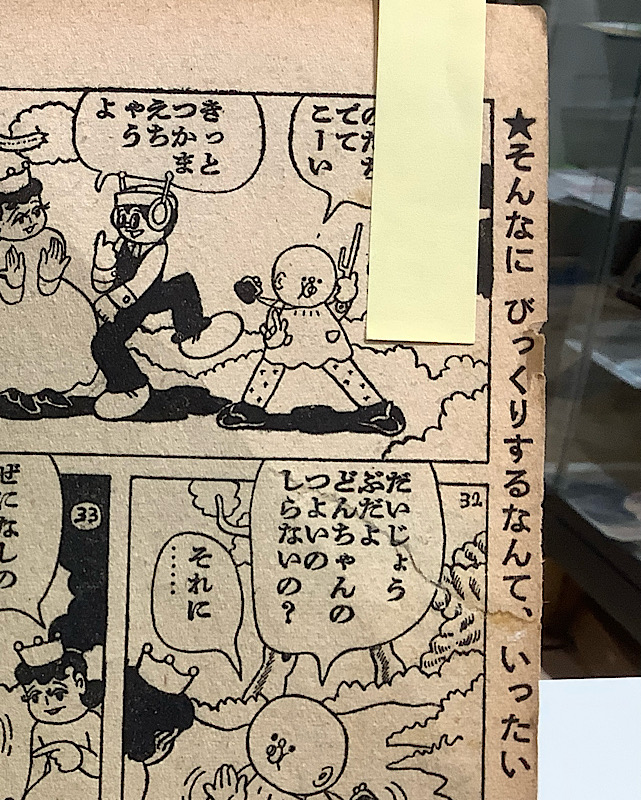 ★そんなに びっくりするなんて、いったい
でて
こーい
きっと
つかま
えちゃ
うよ
32
だいじょう
ぶだよ
どんちゃんの
つよいの
しらないの？
それに
……
33
ぜになしの